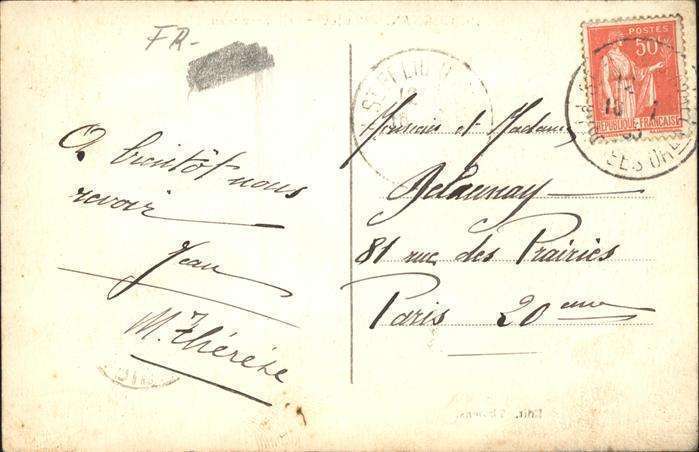 FR-
A bientôt nous
revoir
Jean
M. Thérèse
Monsieur et Madame
Delaunay
81 rue des Prairies
Paris 20 eme
POSTES
50c
REPUBLIQUE FRANÇAISE
Edit.